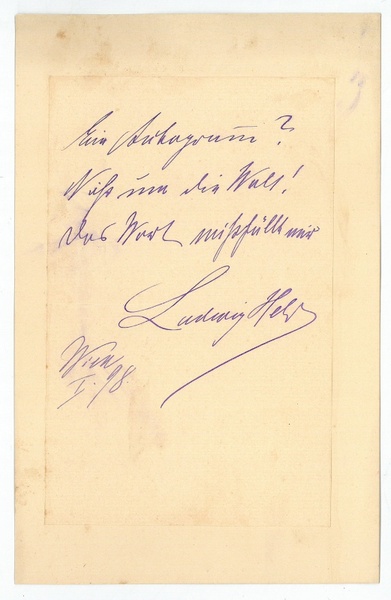 Ein Autogramm?
Nicht um die Welt!
Das Wort mißfällt mir
Ludwig Held
Wien
I. 98.